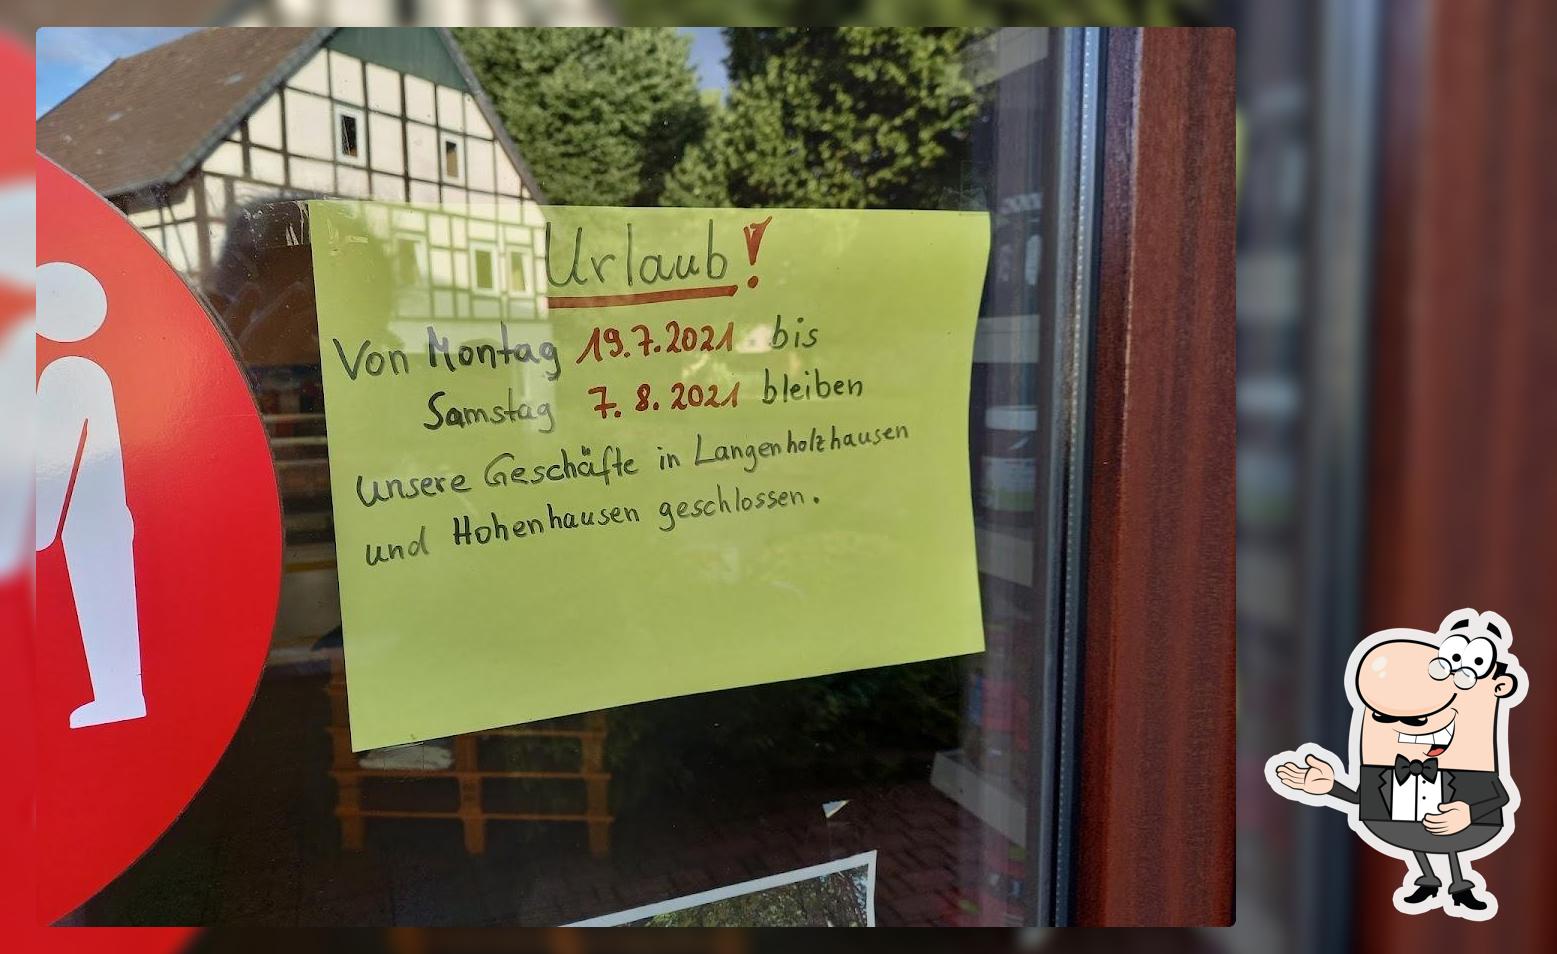 Urlaub!
Von Montag 19.7.2021 bis
Samstag 7.8.2021 bleiben
unsere Geschäfte in Langenholzhausen
und Hohenhausen geschlossen.